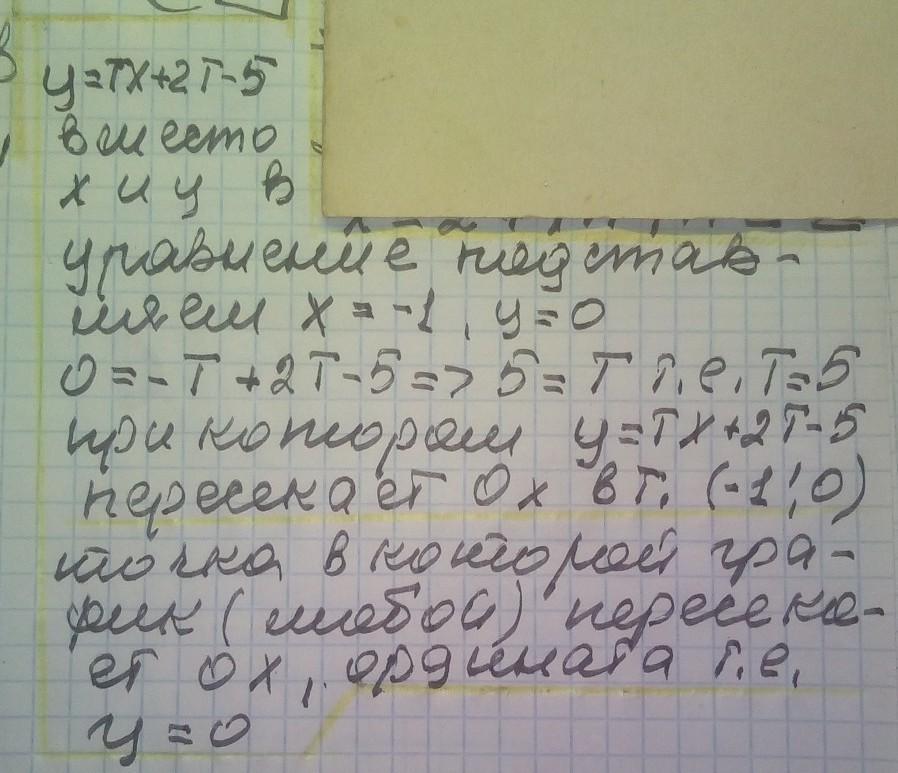 y=Tx+2T-5
вместо
x и y в
уравнение подстав-
ляем x=-1, y=0
0=-T+2T-5=>5=T т.е. T=5
при котором y=Tx+2T-5
пересекает Ox в т. (-1;0)
точка, в которой гра-
фик (любой) пересека-
ет Ox, ордината т.е.
y=0